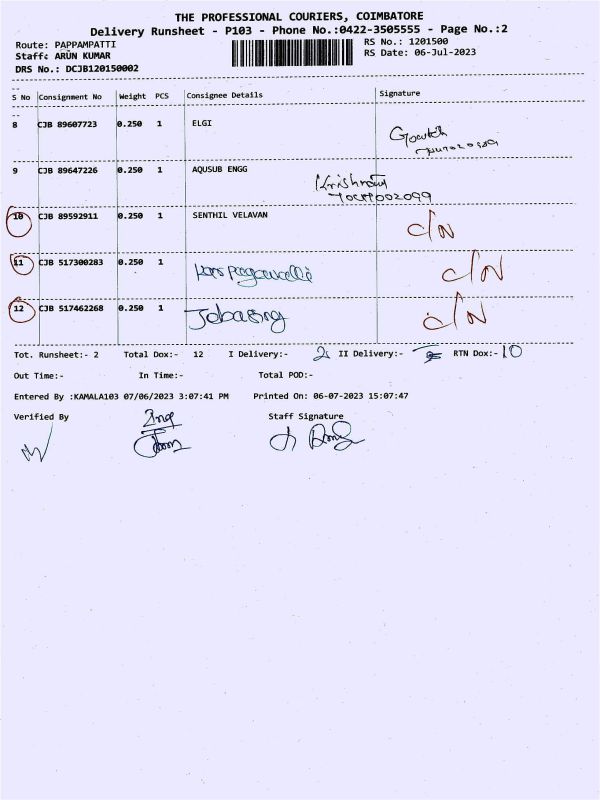 THE PROFESSIONAL COURIERS, COIMBATORE
Delivery Runsheet - P103 - Phone No.:0422-3505555 - Page No.:2
Route: PAPPAMPATTI RS No.: 1201500
Staff: ARUN KUMAR RS Date: 06-Jul-2023
DRS No.: DCJB120150002
S No Consignment No Weight PCS Consignee Details Signature
8 CJB 89607723 0.250 1 ELGI
9 CJB 89647226 0.250 1 AQUSUB ENGG
10 CJB 89592911 0.250 1 SENTHIL VELAVAN C/N
11 CJB 517300283 0.250 1 C/N
12 CJB 517462268 0.250 1 C/N
Tot. Runsheet:- 2 Total Dox:- 12 I Delivery:- 2 II Delivery:- RTN Dox:- 10
Out Time:- In Time:- Total POD:-
Entered By :KAMALA103 07/06/2023 3:07:41 PM Printed On: 06-07-2023 15:07:47
Verified By Staff Signature